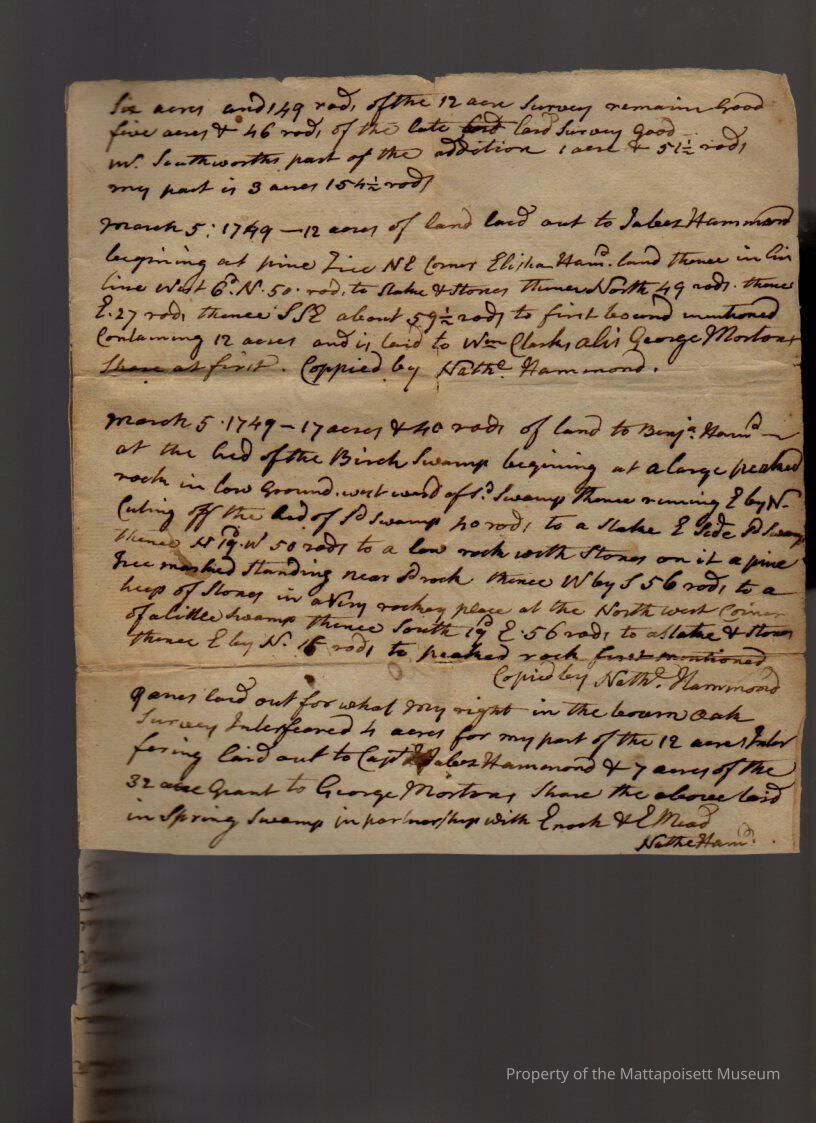 Six acres and 149 rods of the 12 acre Survey remain Good
five acres & 46 rods of the late laid Survey good
mr. Southworths part of the addition 1 acre & 51½ rods
my part is 3 acres 154½ rods
March 5: 1749 — 12 acres of land laid out to Jabez Hammond
begining at pine Tree NE Corner Elisha Hamd. land thence in his
line West 6d. N. 50. rods to Stake & Stones thence North 49 rods. thence
E. 27 rods thence SSE about 59½ rods to first bound mentioned
Containing 12 acres and is laid to Wm Clarks alis George Mortons
Share at first. Coppied by Nathl Hammond.
March 5. 1749 — 17 acres & 40 rods of land to Benja. Hamd
at the hed of the Birch Swamp begining at a large peaked
rock in low Ground. west ward of sd. Swamp thence runing E by N.
Cuting off the hed of sd Swamp 40 rods to a Stake E Side sd Swamp
thence N 19d. W 50 rods to a low rock with Stones on it a pine
tree marked Standing near sd rock thence W by S 56 rods to a
heep of Stones in a Very rockey place at the North west Corner
of a little Swamp thence South 19d E. 56 rods to a Stake & Stones
thence E by N. 15 rods to peaked rock first mentioned
Copied by Nathl. Hammond
9 acres laid out for what my right in the bourn oak
Survey Interfeared 4 acres for my part of the 12 acres Inter
fering laid out to Capt Jabez Hammond & 7 acres of the
32 acre Grant to George Mortons Share the above laid
in Spring Swamp in partnership with Enoch & E Mead
Nathl Hamd.
Property of the Mattapoisett Museum